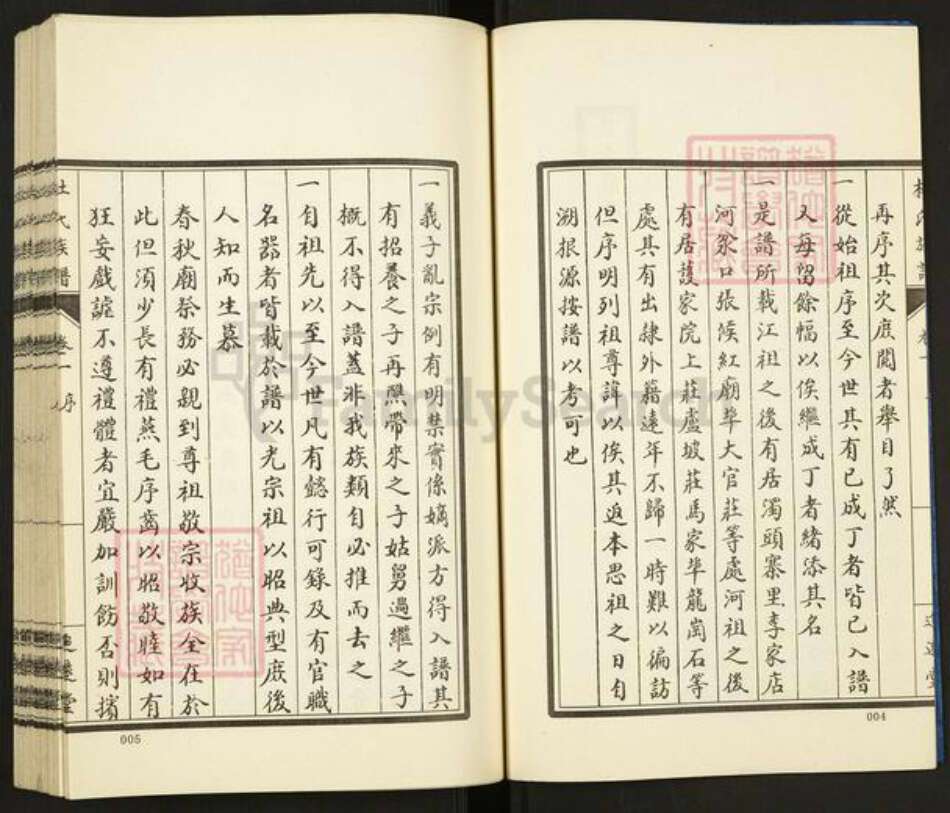 再序其次庶閱者舉目了然
一從始祖序至今世其有已成丁者皆已入譜
又每留餘幅以俟繼成丁者緒添其名
一是譜所載江祖之後有居濁頭寨里李家店
河泉口張候紅廟埠大官莊等處河祖之後
有居護家院上莊盧坡莊馬家埠龍崗石等
處其有出隸外籍遠年不歸一時難以徧訪
但序明列祖尊諱以俟其返本思祖之日自
溯根源按譜以考可也
004
一義子亂宗例有明禁實係嫡派方得入譜其
有招養之子再醮帶來之子姑舅過繼之子
概不得入譜蓋非我族類自必推而去之
一自祖先以至今世凡有懿行可錄及有官職
名器者皆載於譜以光宗祖以昭典型庶後
人知而生慕
春秋廟祭務必親到尊祖敬宗收族全在於
此但須少長有禮燕毛序齒以昭敬睦如有
狂妄戲謔不遵禮體者宜嚴加訓飭否則擯
杜氏族譜 卷一 序
005
FamilySearch